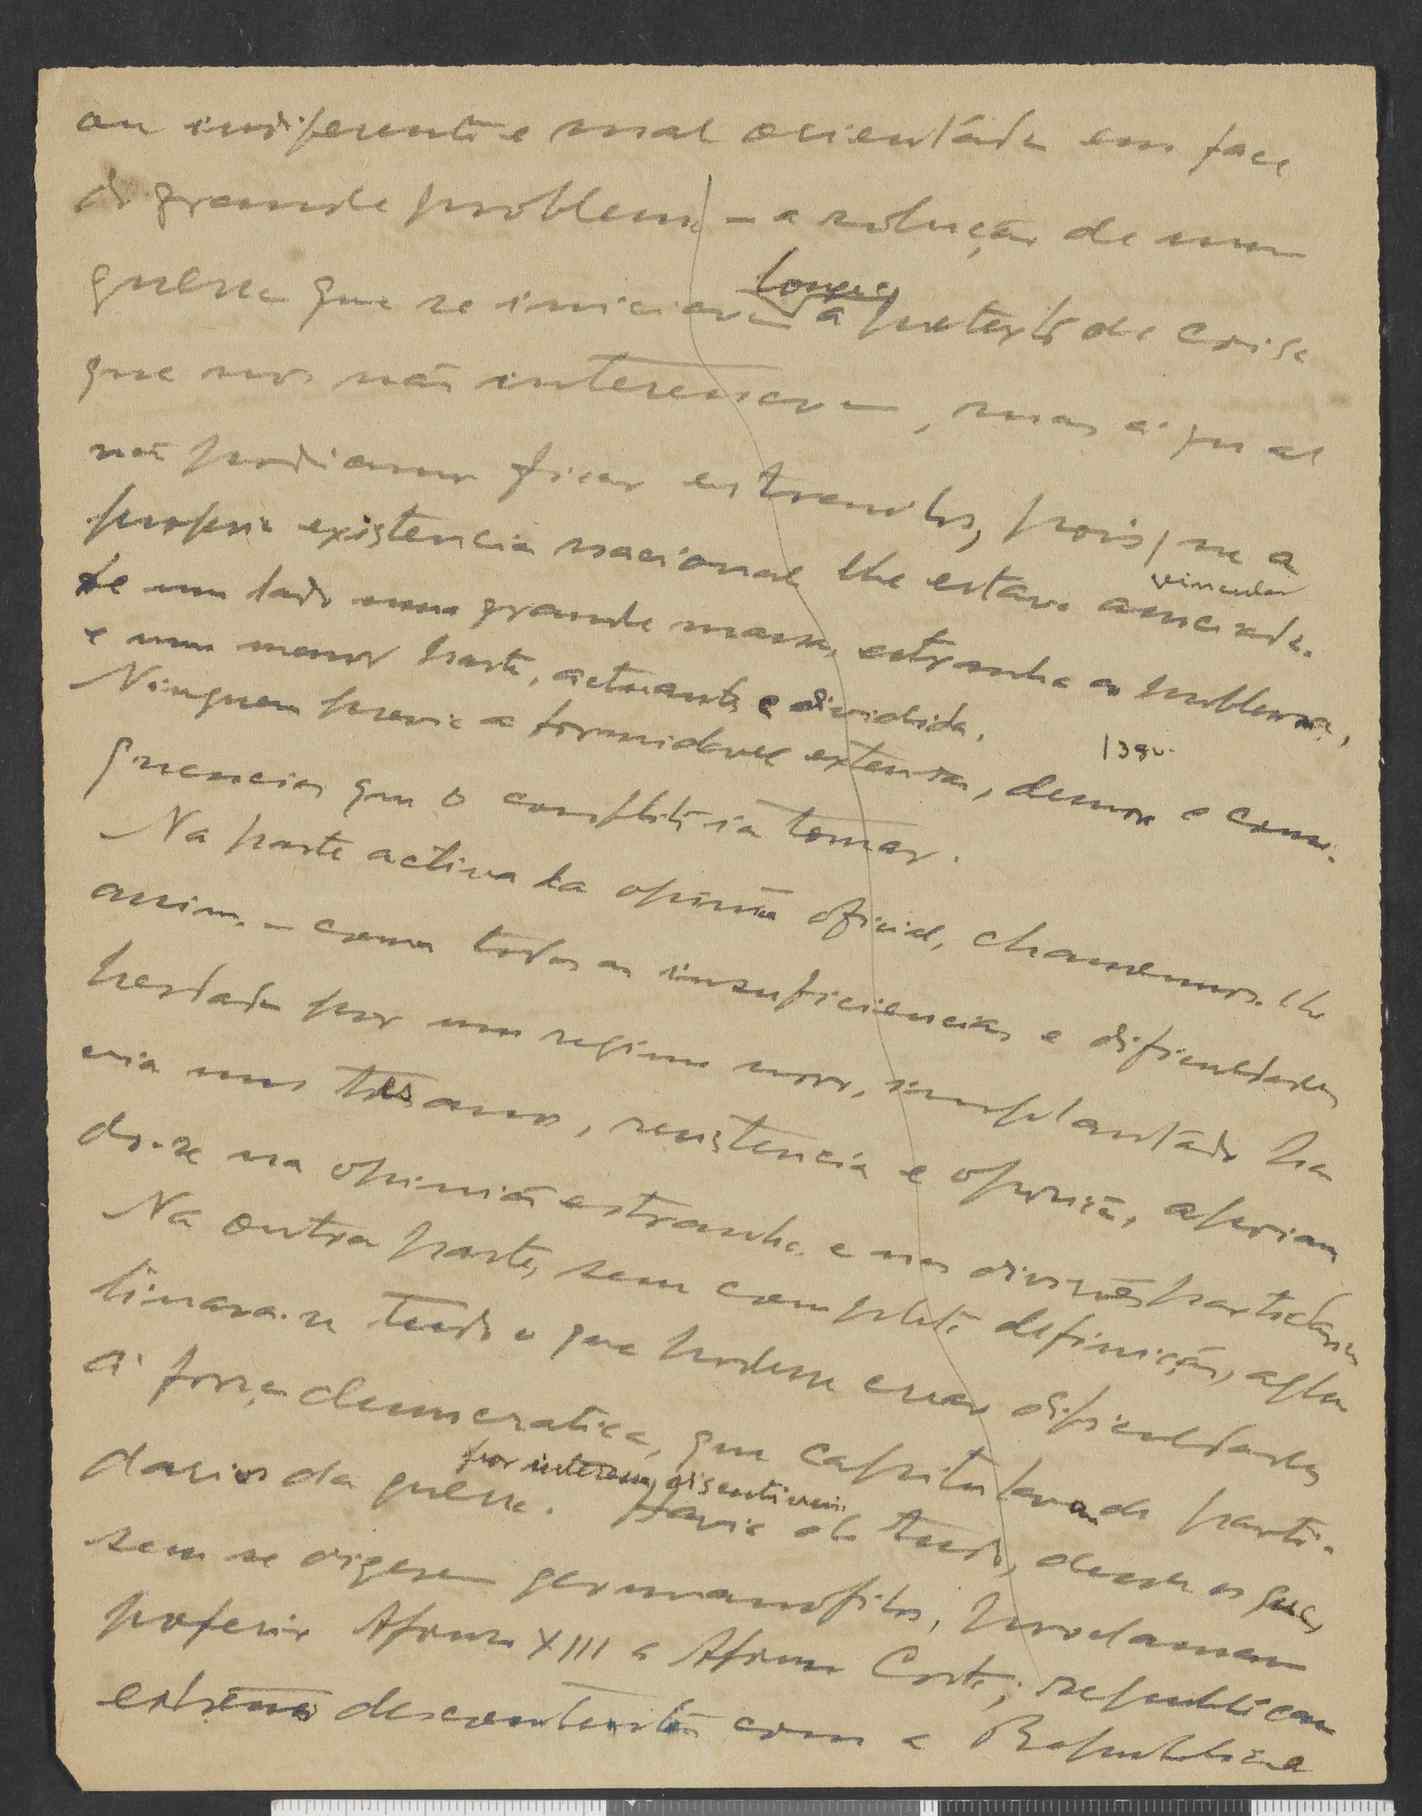 ou indiferente e mal orientada em face
do grande problema – a solução de uma
guerra que se iniciava longe a pretexto de coisa
que nos não interessava, mas á qual
não podiamos ficar estranhos, pois que a
propria existencia nacional lhe estava associada. vincular
De um lado uma grande massa, estranha ao problema,
e uma menor parte, actuante e dividida.
Ninguem previa a formidavel extensão, demora e conse-
quencias que o conflito ia tomar.
Na parte activa da opinião oficial, chamemos-lhe
assim, – com todas as insuficiencias e dificuldades
herdadas por um regime novo, implantado ha-
via uns tres anos, resistencia e oposição, apoian-
do-se na opinião estranha e nas divisões partidarias
Na outra parte, sem completa definição, aglu-
tinara-se tudo o que pudesse criar dificuldades
á força democratica, que capitulavam de parti-
darios da guerra. Havia de tudo, desde os que,
sem se dizerem germanofilos, proclamavam
preferir Afonso XIII a Afonso Costa; republicanos
descontentes com a Republica